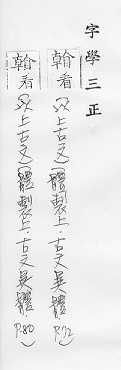 字學三正
翰看(以上古文)(體製上·古文異體P.72)
翰看(以上古文)(體製上·古文異體P.80)